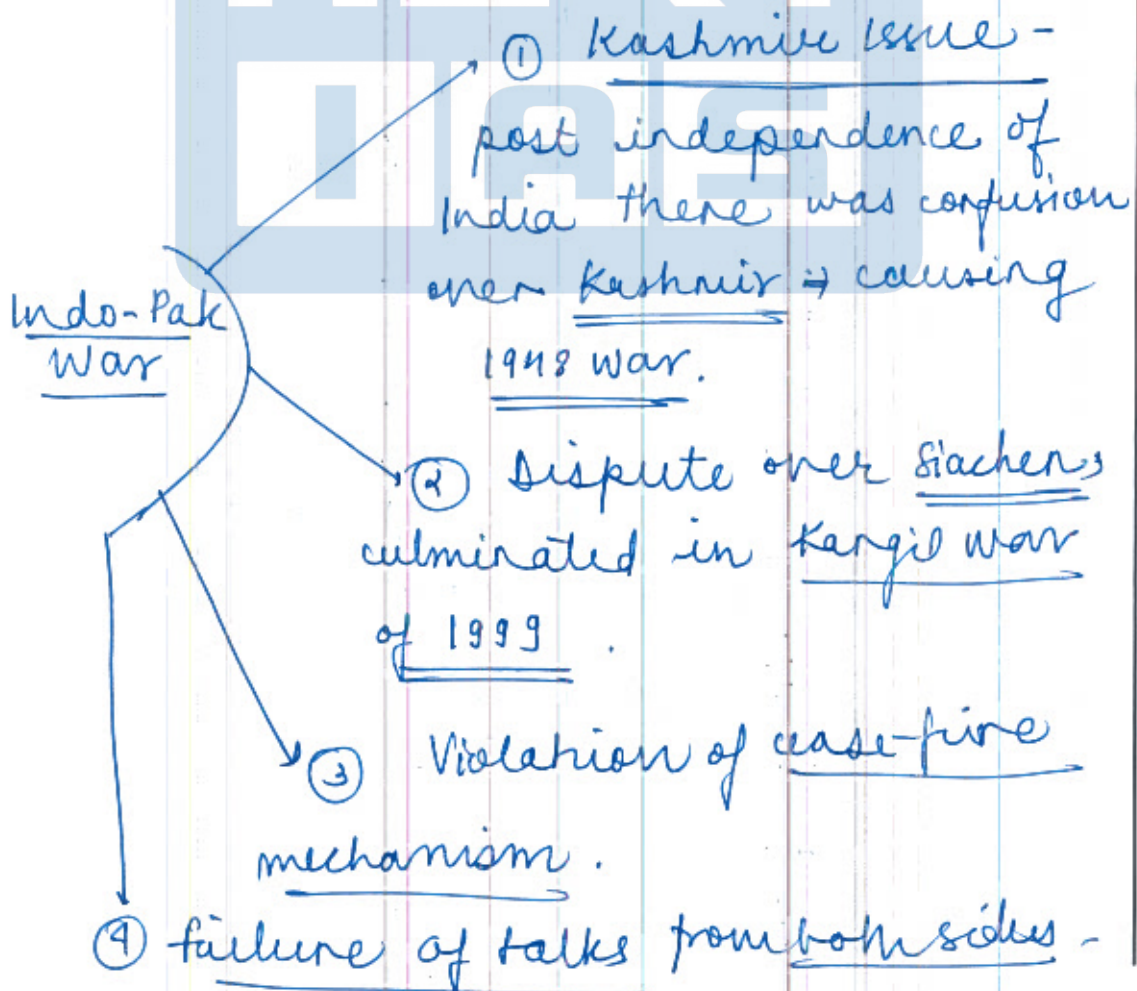 IAS
① Kashmir Issue -
post independence of
India there was confusion
over Kashmir ⇒ causing
1948 war.
Indo-Pak
War
② Dispute over Siachen,
culminated in Kargil war
of 1999 .
③ Violation of cease-fire
mechanism .
④ failure of talks from both sides -